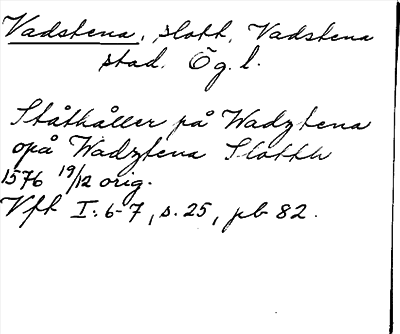 Vadstena, slott, Vadstena
stad. Ög. l.
Ståthåller på Wadztena
opå Wadztena Slotth
1576 19/12 orig.
Vft I: 6-7, s. 25, pb 82.